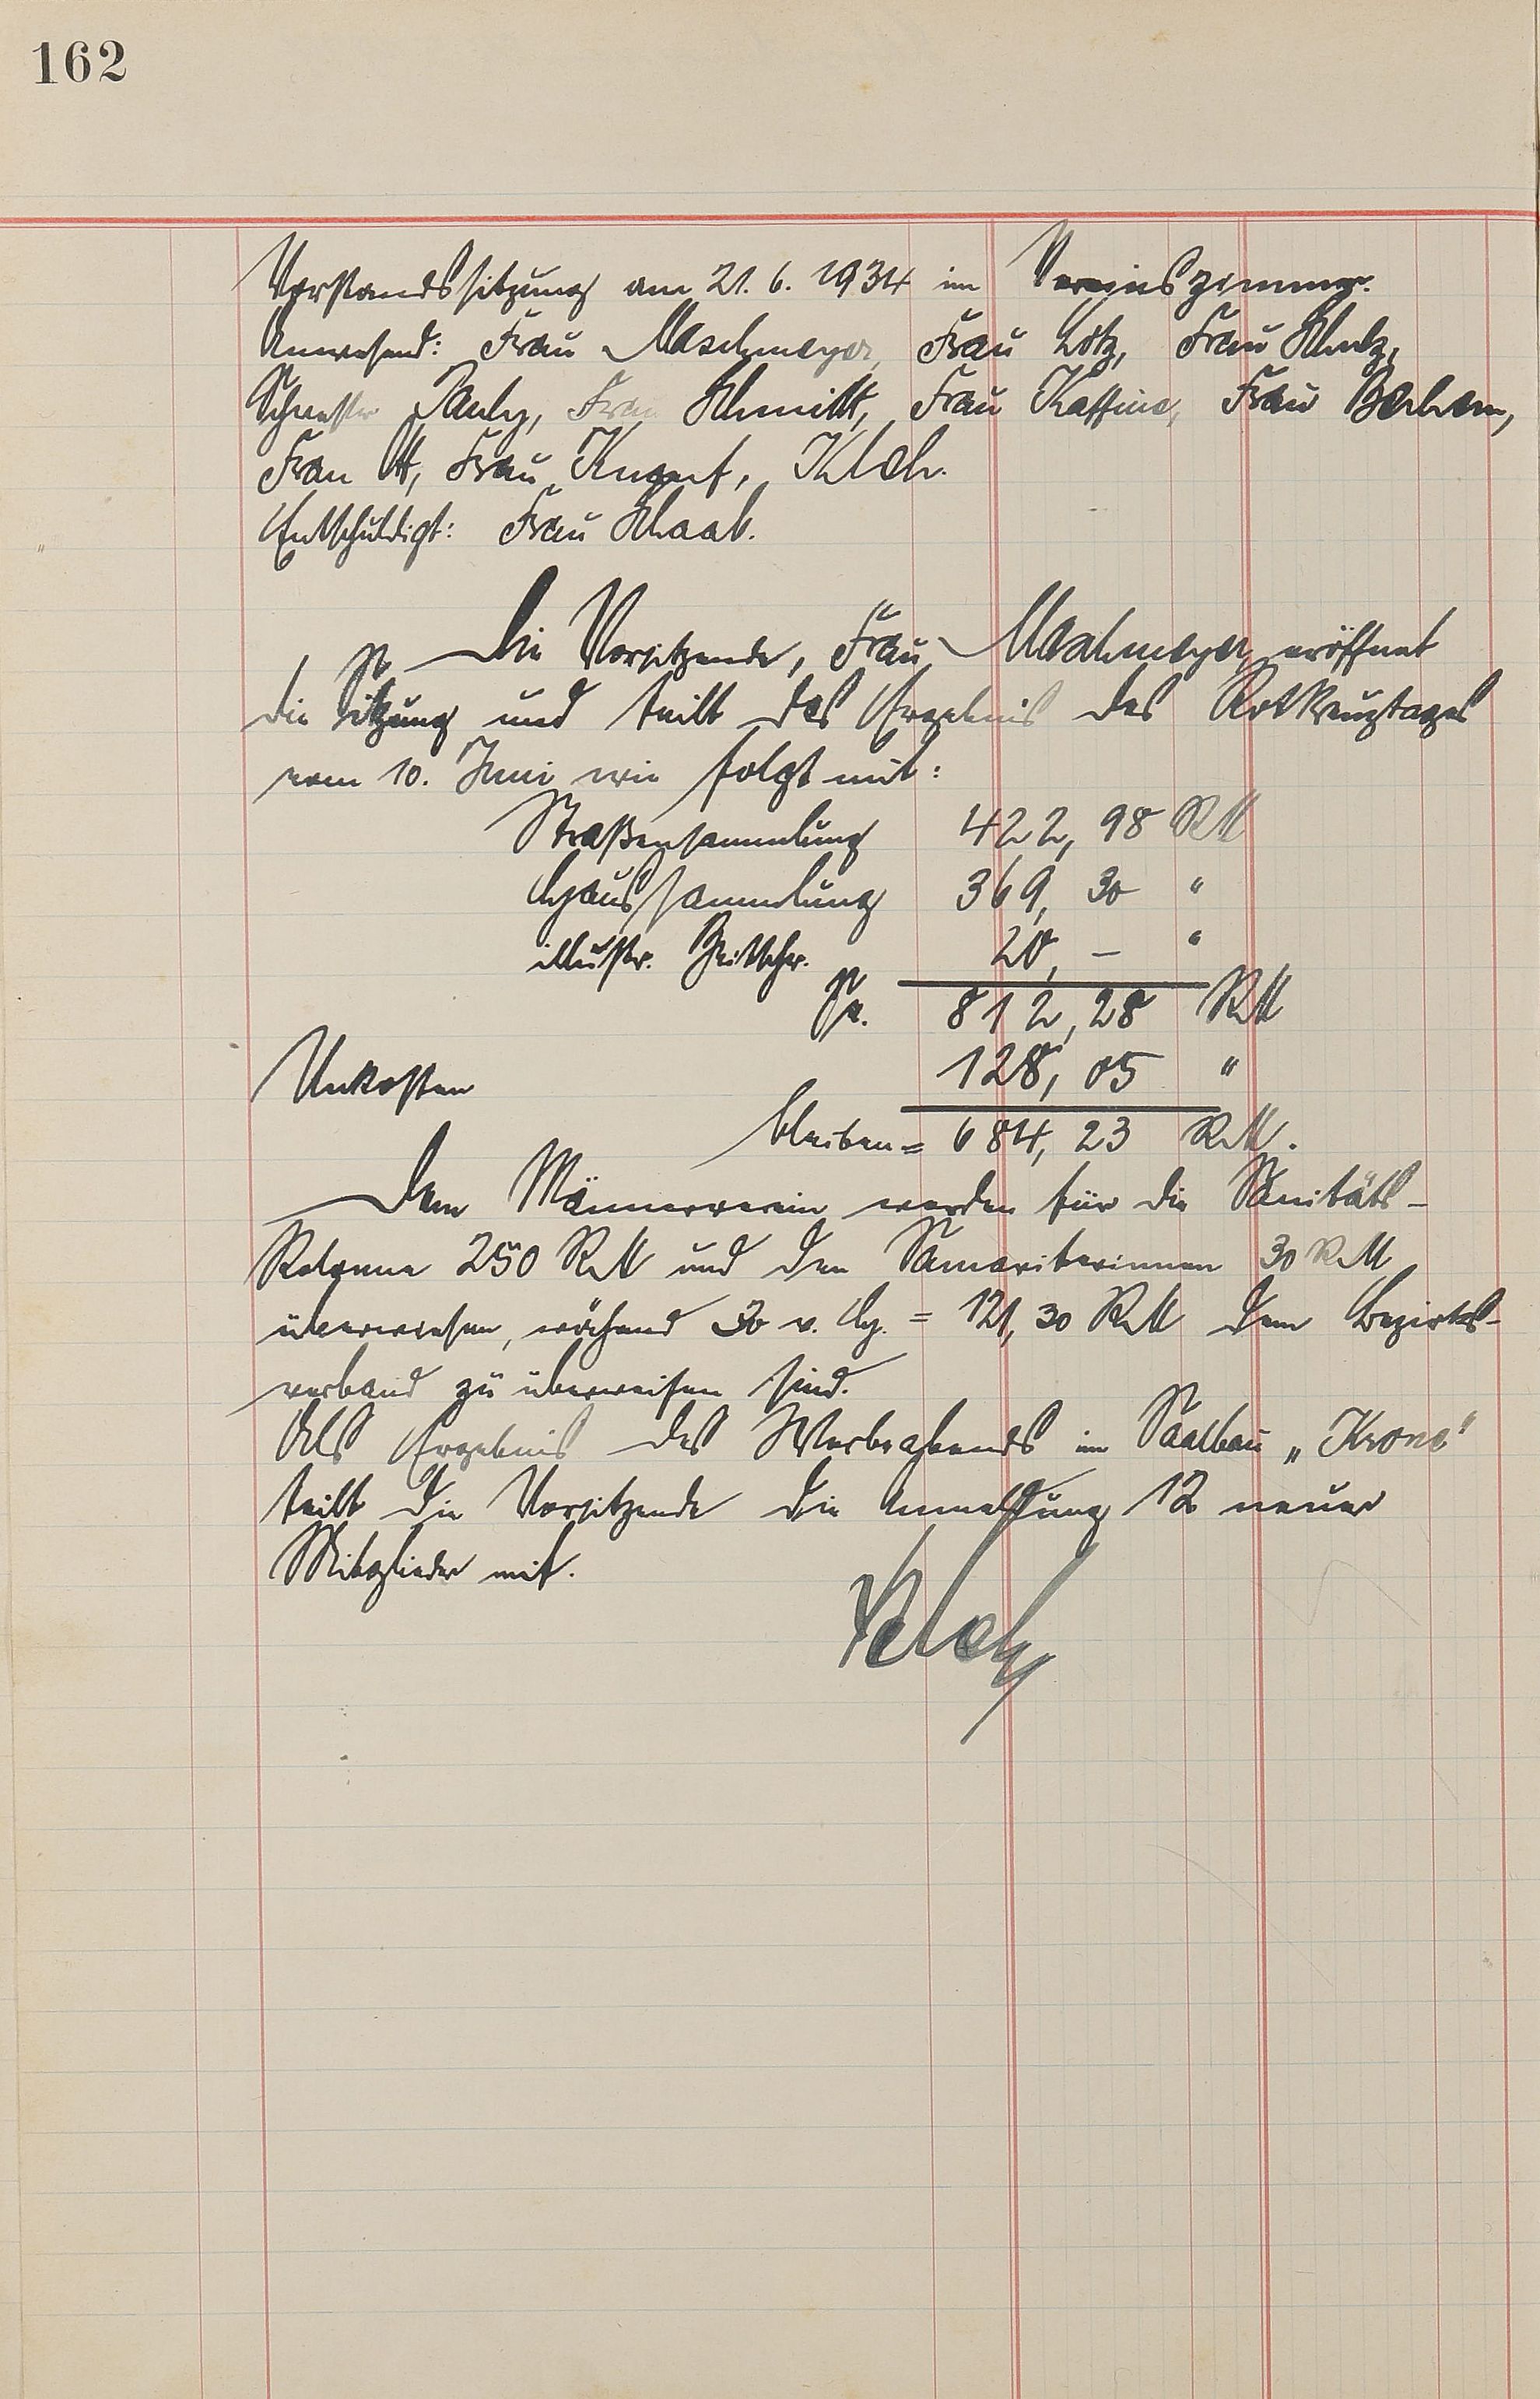 162
Vorstandssitzung am 21. 6. 1934 im Vereinszimmer.
Anwesend: Frau Maschmeyer, Frau Lotz, Frau Schulz,
Schwester Pauly, Frau Schmitt, Frau Kaffine, Frau
Frau Ott, Frau Kloch.
Entschuldigt: Frau Schaab.
Die Vorsitzende, Frau Maschmeyer, eröffnet
die Sitzung und teilt das Ergebnis des Rotkreuztages
vom 10. Juni wie folgt mit:
Straßensammlung 422,98 RM
Haussammlung 369,30 "
illustr. Zeitschr. 20,— "
Sa. 812,28 RM
Unkosten 128,05 "
bleiben = 684,23 RM.
Dem Männerverein werden für die Sanitäts-
Kolonne 250 RM und den Samariterinnen 30 RM
überwiesen, während 30 v. H. = 121,30 RM dem Bezirks-
verband zu überweisen sind.
Als Ergebnis des Werbeabends im Saalbau „Krone"
teilt die Vorsitzende die Anmeldung 12 neuer
Mitglieder mit.
Kloch